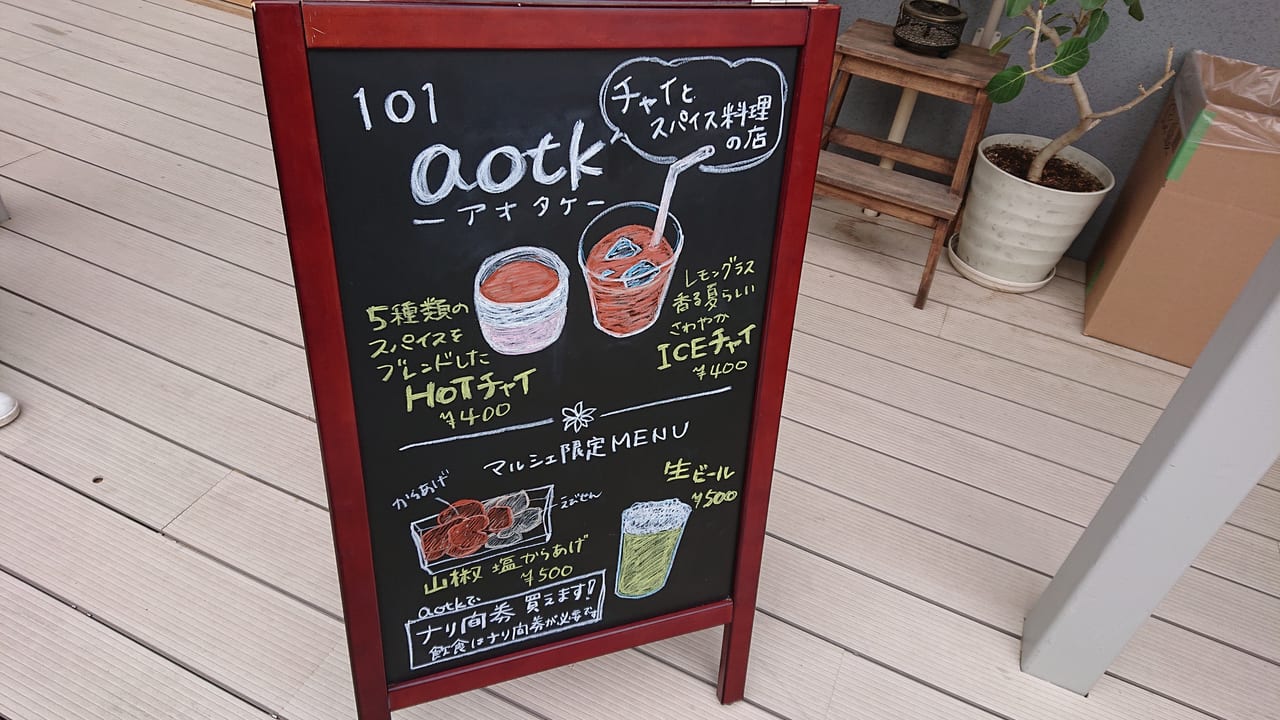 101
チャイと
スパイス料理
の店
aotk
ーアオタケー
5種類の
スパイスを
ブレンドした
HOTチャイ
¥400
レモングラス
香る夏らしい
さわやか
ICEチャイ
¥400
マルシェ限定MENU
からあげ
えびせん
山椒 塩からあげ
¥500
生ビール
¥500
aotkで、
ナリ間券 買えます!
飲食はナリ間券が必要です